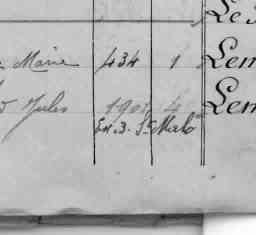 Le
Marie 434 1 Lem
Jules 190 4 Lem
En. 3. St Malo